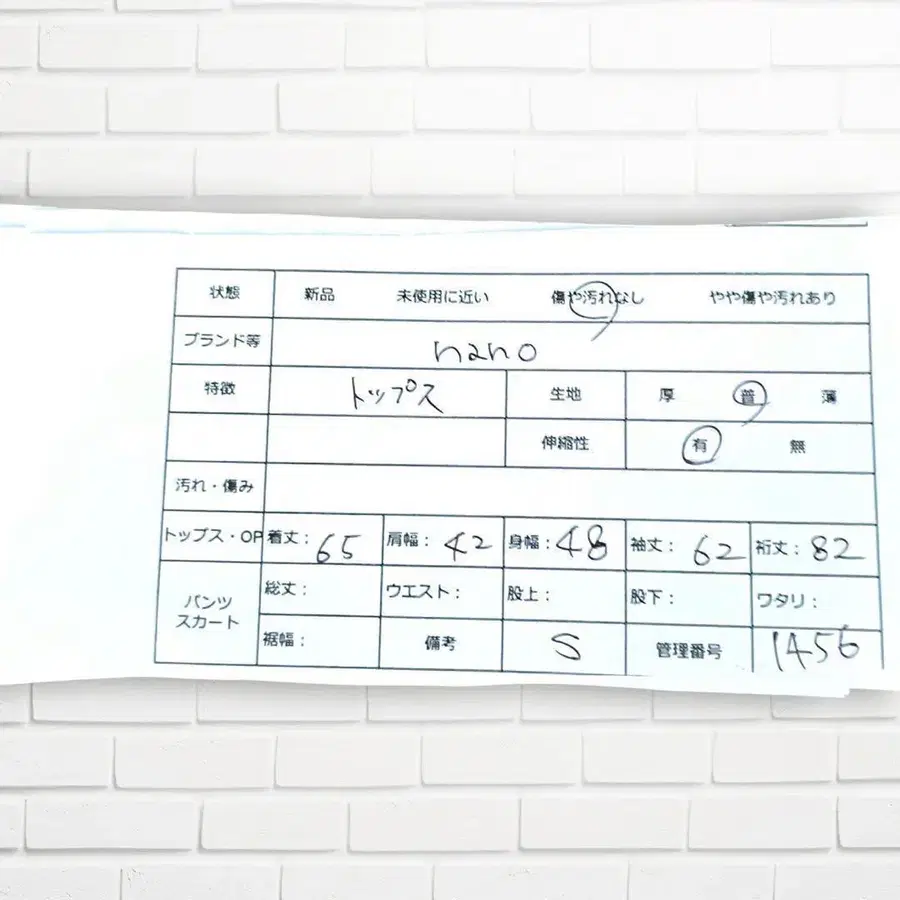 状態 新品 未使用に近い 傷や汚れなし やや傷や汚れあり
ブランド等 nano
特徴 トップス 生地 厚 普 薄
伸縮性 有 無
汚れ・傷み
トップス・OP 着丈: 65 肩幅: 42 身幅: 48 袖丈: 62 裄丈: 82
パンツ スカート 総丈: ウエスト: 股上: 股下: ワタリ:
裾幅: 備考 S 管理番号 1456